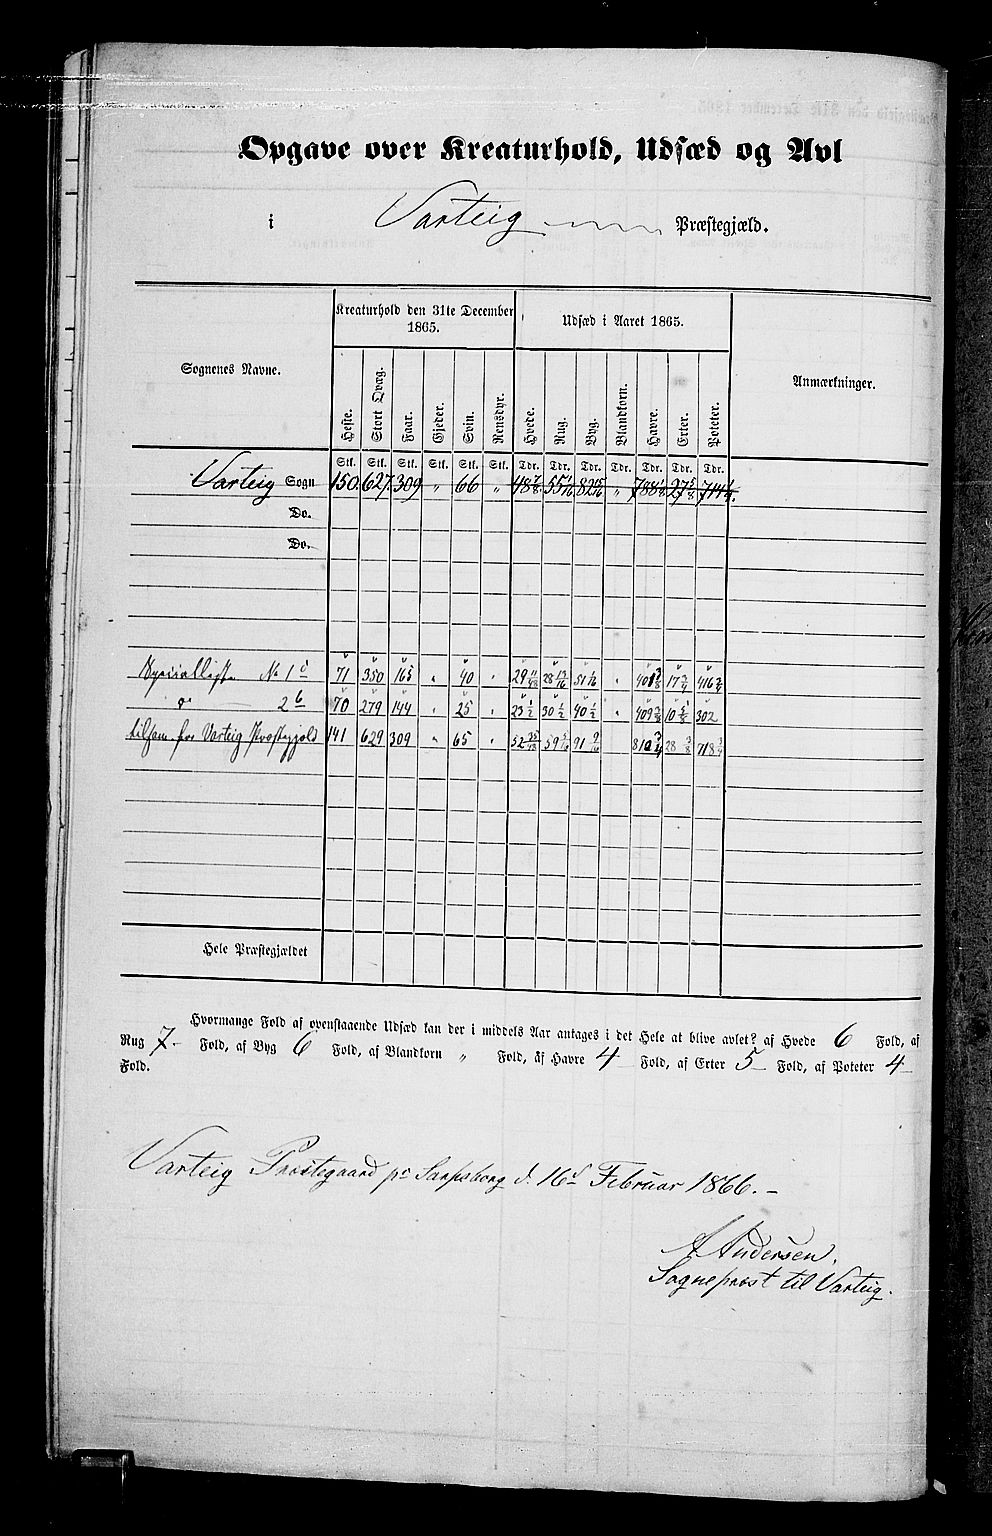 Opgave over Kreaturhold, Udsæd og Avl
i Varteig Præstegjæld.
Sognenes Navne.
Kreaturhold den 31te December 1865.
Udsæd i Aaret 1865.
Anmærkninger.
Heste. Stort Qvæg. Faar. Gjeder. Svin. Rensdyr. Hvede. Rug. Byg. Blandkorn. Havre. Erter. Poteter.
Stk. Stk. Stk. Stk. Stk. Stk. Tdr. Tdr. Tdr. Tdr. Tdr. Tdr. Tdr.
Varteig Sogn 150. 627. 309 " 66 " 48 7/8 55 1/16 82 " 788 1/8 27 5/8 744 1/4
Do.
Do.
Specialliste No 1 71 350 165 " 40 " 29 28 13/16 51 1/16 " 401 3/8 17 3/4 416 3/4
2 70 279 144 " 25 " 23 1/2 30 1/2 40 1/2 " 409 3/8 10 5/8 302
tilsam. for Varteig Præstegjeld 141 629 309 " 65 " 52 59 5/16 91 9/16 810 3/4 28 3/8 718 3/4
Hele Præstegjældet
Hvormange Fold af ovenstaaende Udsæd kan der i middels Aar antages i det Hele at blive avlet? af Hvede 6 Fold, af
Rug 7 - Fold, af Byg 6 Fold, af Blandkorn " Fold, af Havre 4 Fold, af Erter 5 Fold, af Poteter 4
Fold.
Varteig Præstegaard pr Sarpsborg d. 16d Februar 1866. -
A Andersen.
Sognepræst til Varteig.